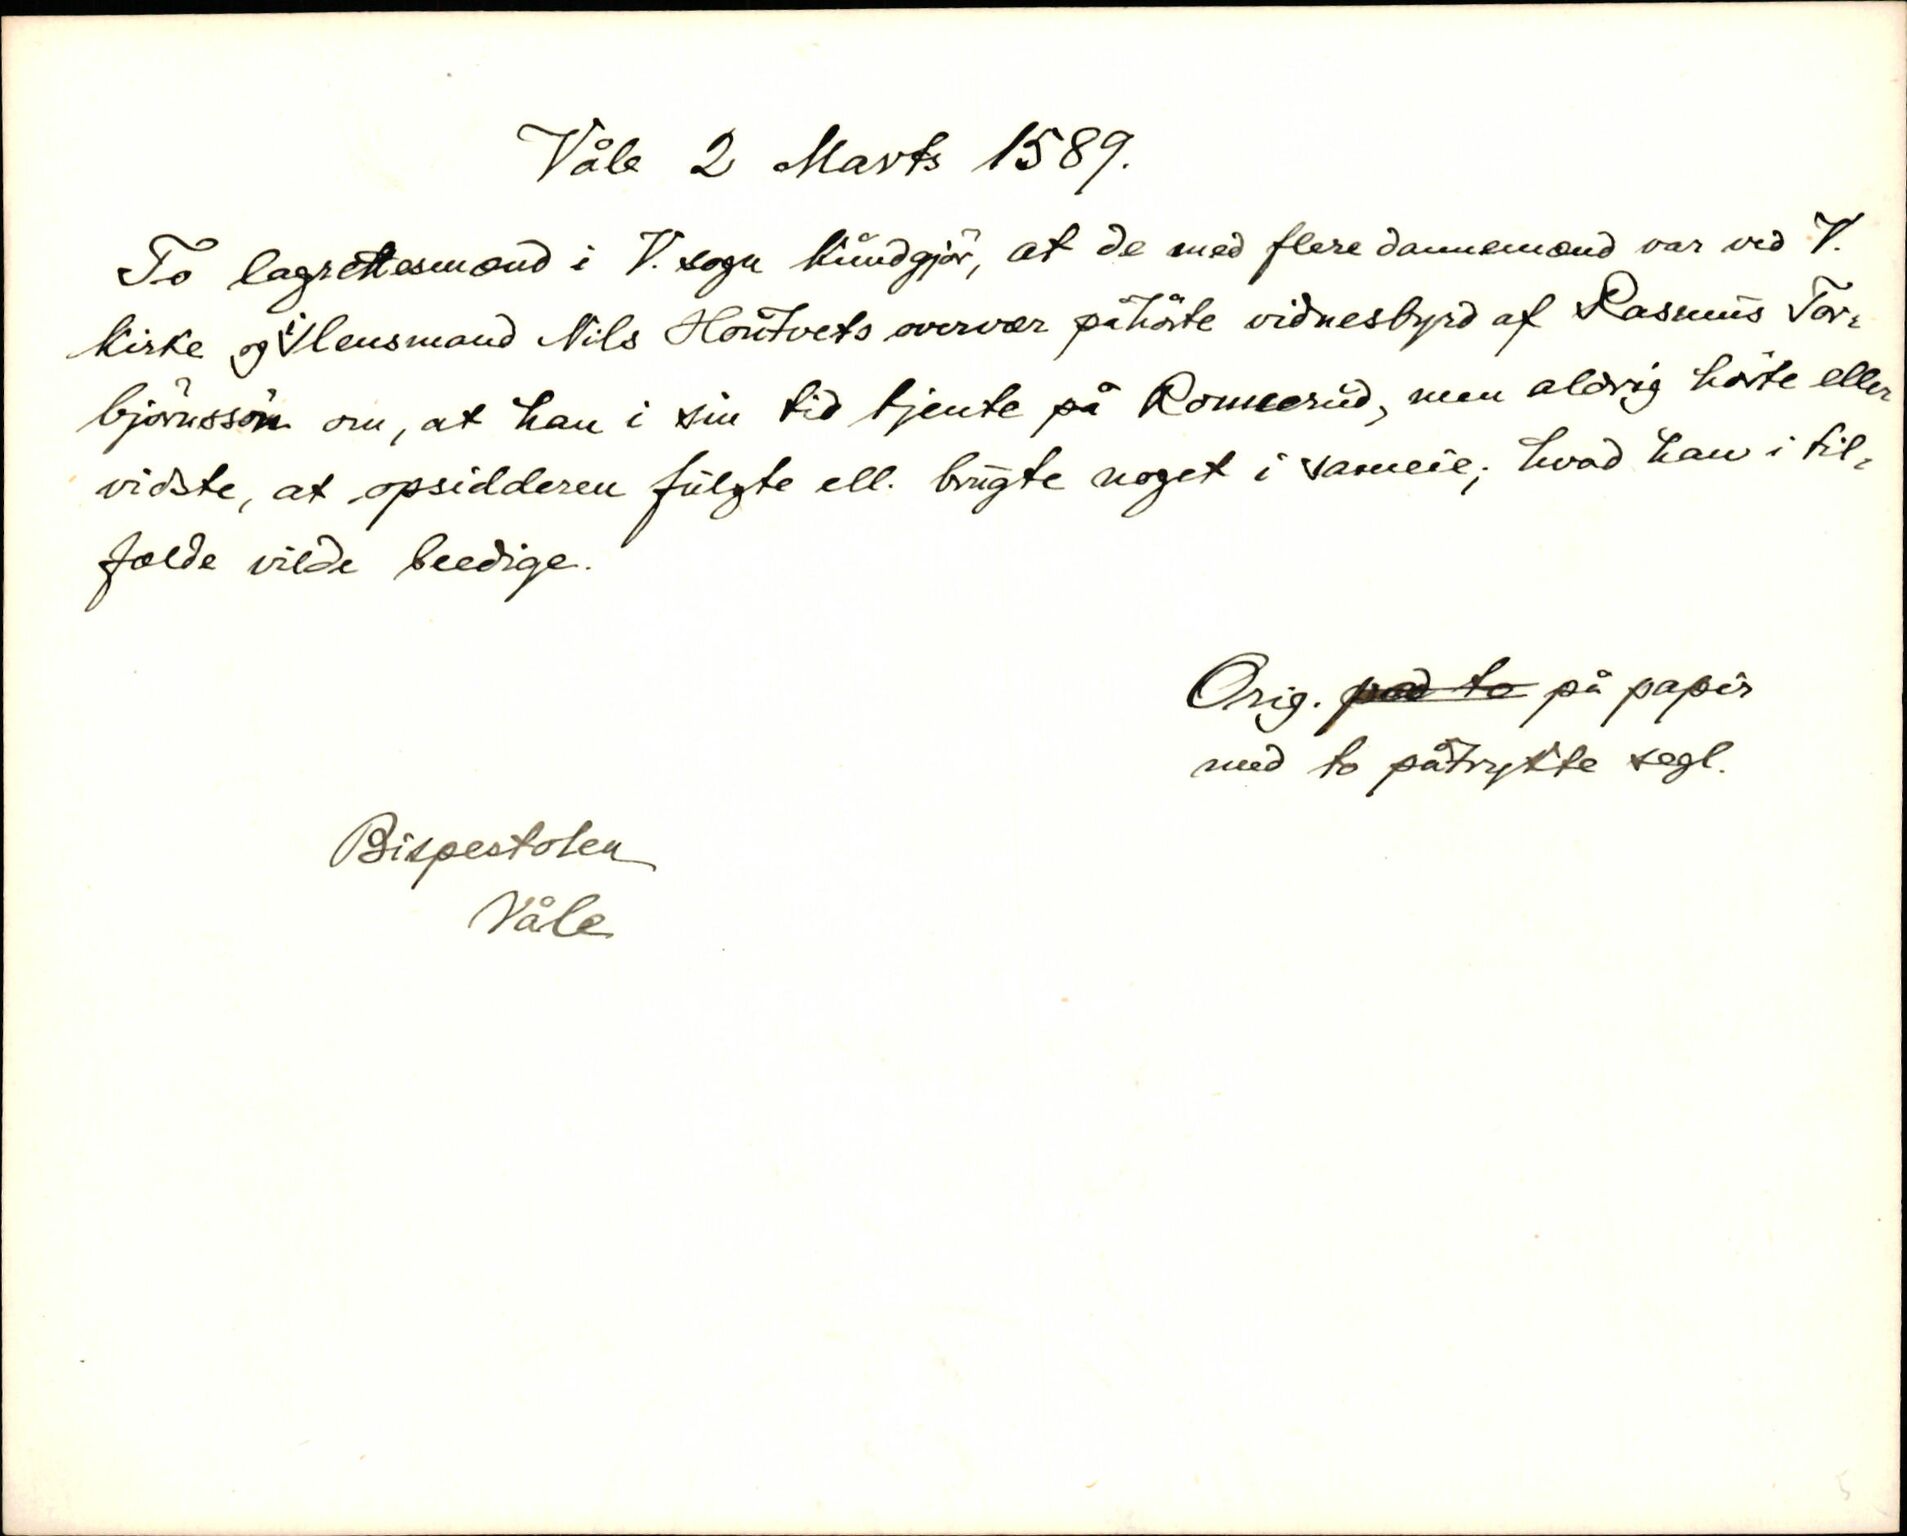 Våle 2 Marts 1589.
To lagrettesmænd i V. sogn kundgjör, at de med flere dannemænd var ved V.
kirke og i lensmand Nils Houtvets overvær påhörte vidnesbyrd af Rasmus Tor-
björnssön om, at han i sin tid tjente på Romerud, men aldrig hörte eller
vidste, at opsidderen fulgte ell. brugte noget i sameie; hvad han i til-
fælde vilde beedige.
Orig. på papir
med to påtrykte segl.
Bispestolen
Våle
5